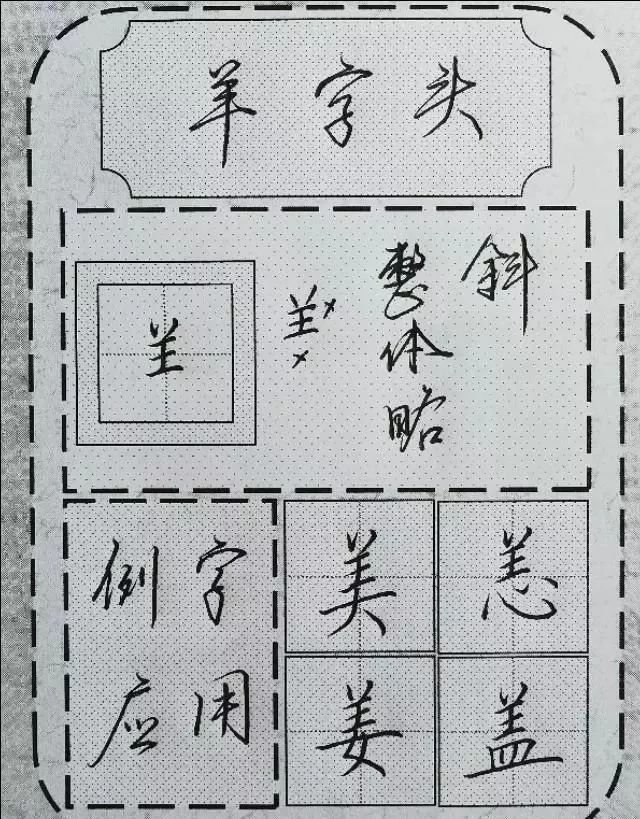 羊字头
𦍌
𦍌
整体略
斜
例字
应用
美
恙
姜
盖